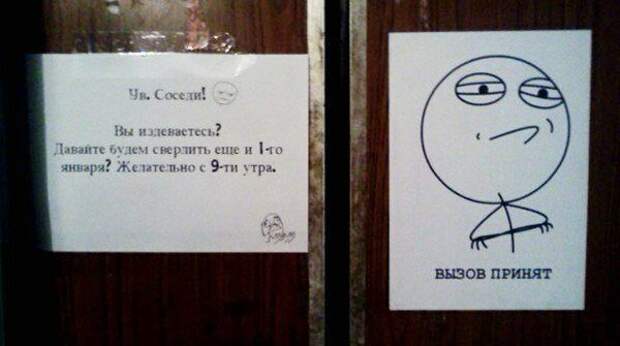 Ув. Соседи!
Вы издеваетесь?
Давайте будем сверлить еще и 1-го
января? Желательно с 9-ти утра.
ВЫЗОВ ПРИНЯТ